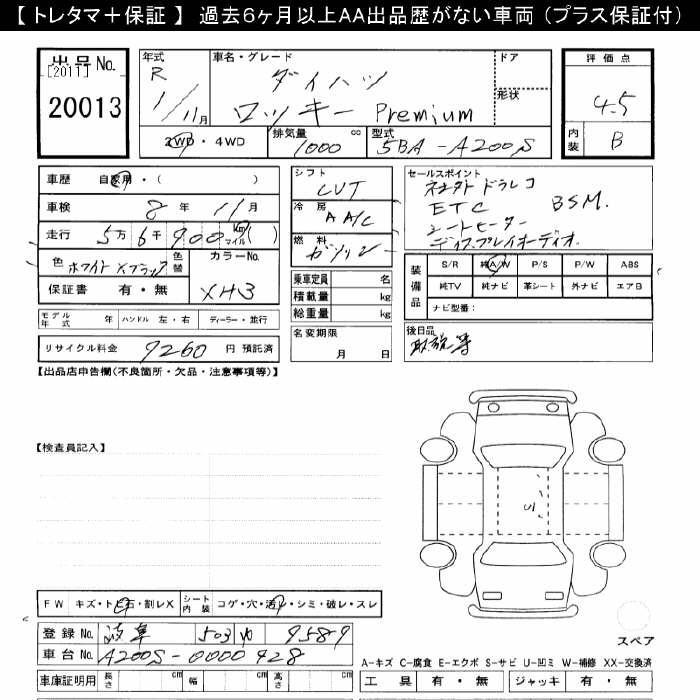 【 トレタマ＋保証 】 過去6ヶ月以上AA出品歴がない車両（プラス保証付）
出品 No.
[2011]
20013
年式
R
1/11月
車名・グレード
ダイハツ
ロッキー Premium
ドア
形状
2WD・4WD
排気量 cc
1000
型式
5BA-A200S
評価点
4.5
内装
B
車歴 自家用・( )
車検 8年 11月
走行 5万 6千 900 km マイル ( )
色 ホワイト×ブラック 色替
カラーNo.
XH3
保証書 有・無
モデル年式 年 ハンドル 左・右 ディーラー・並行
リサイクル料金 9260 円 預託済
シフト
CVT
冷房
A A/C
燃料
ガソリン
乗車定員 名
積載量 kg
総重量 kg
名変期限
月 日
セールスポイント
ドラレコ
ETC BSM.
シートヒーター
ディスプレイオーディオ
装備品
S/R 純A/W P/S P/W ABS
純TV 純ナビ 革シート 外ナビ エアB
ナビ型番：
後日品
取説等
【出品店申告欄(不良箇所・欠品・注意事項等)】
【検査員記入】
FW キズ・ト・石・割レX
シート内装 コゲ・穴・汚レ・シミ・破レ・スレ
登録 No. 岐阜 503 9589
車台 No. A200S-0000428
車庫証明用 長さ cm 幅 cm 高さ cm
U
スペア
A-キズ C-腐食 E-エクボ S-サビ U-凹ミ W-補修 XX-交換済
工具 有・無 ジャッキ 有・無